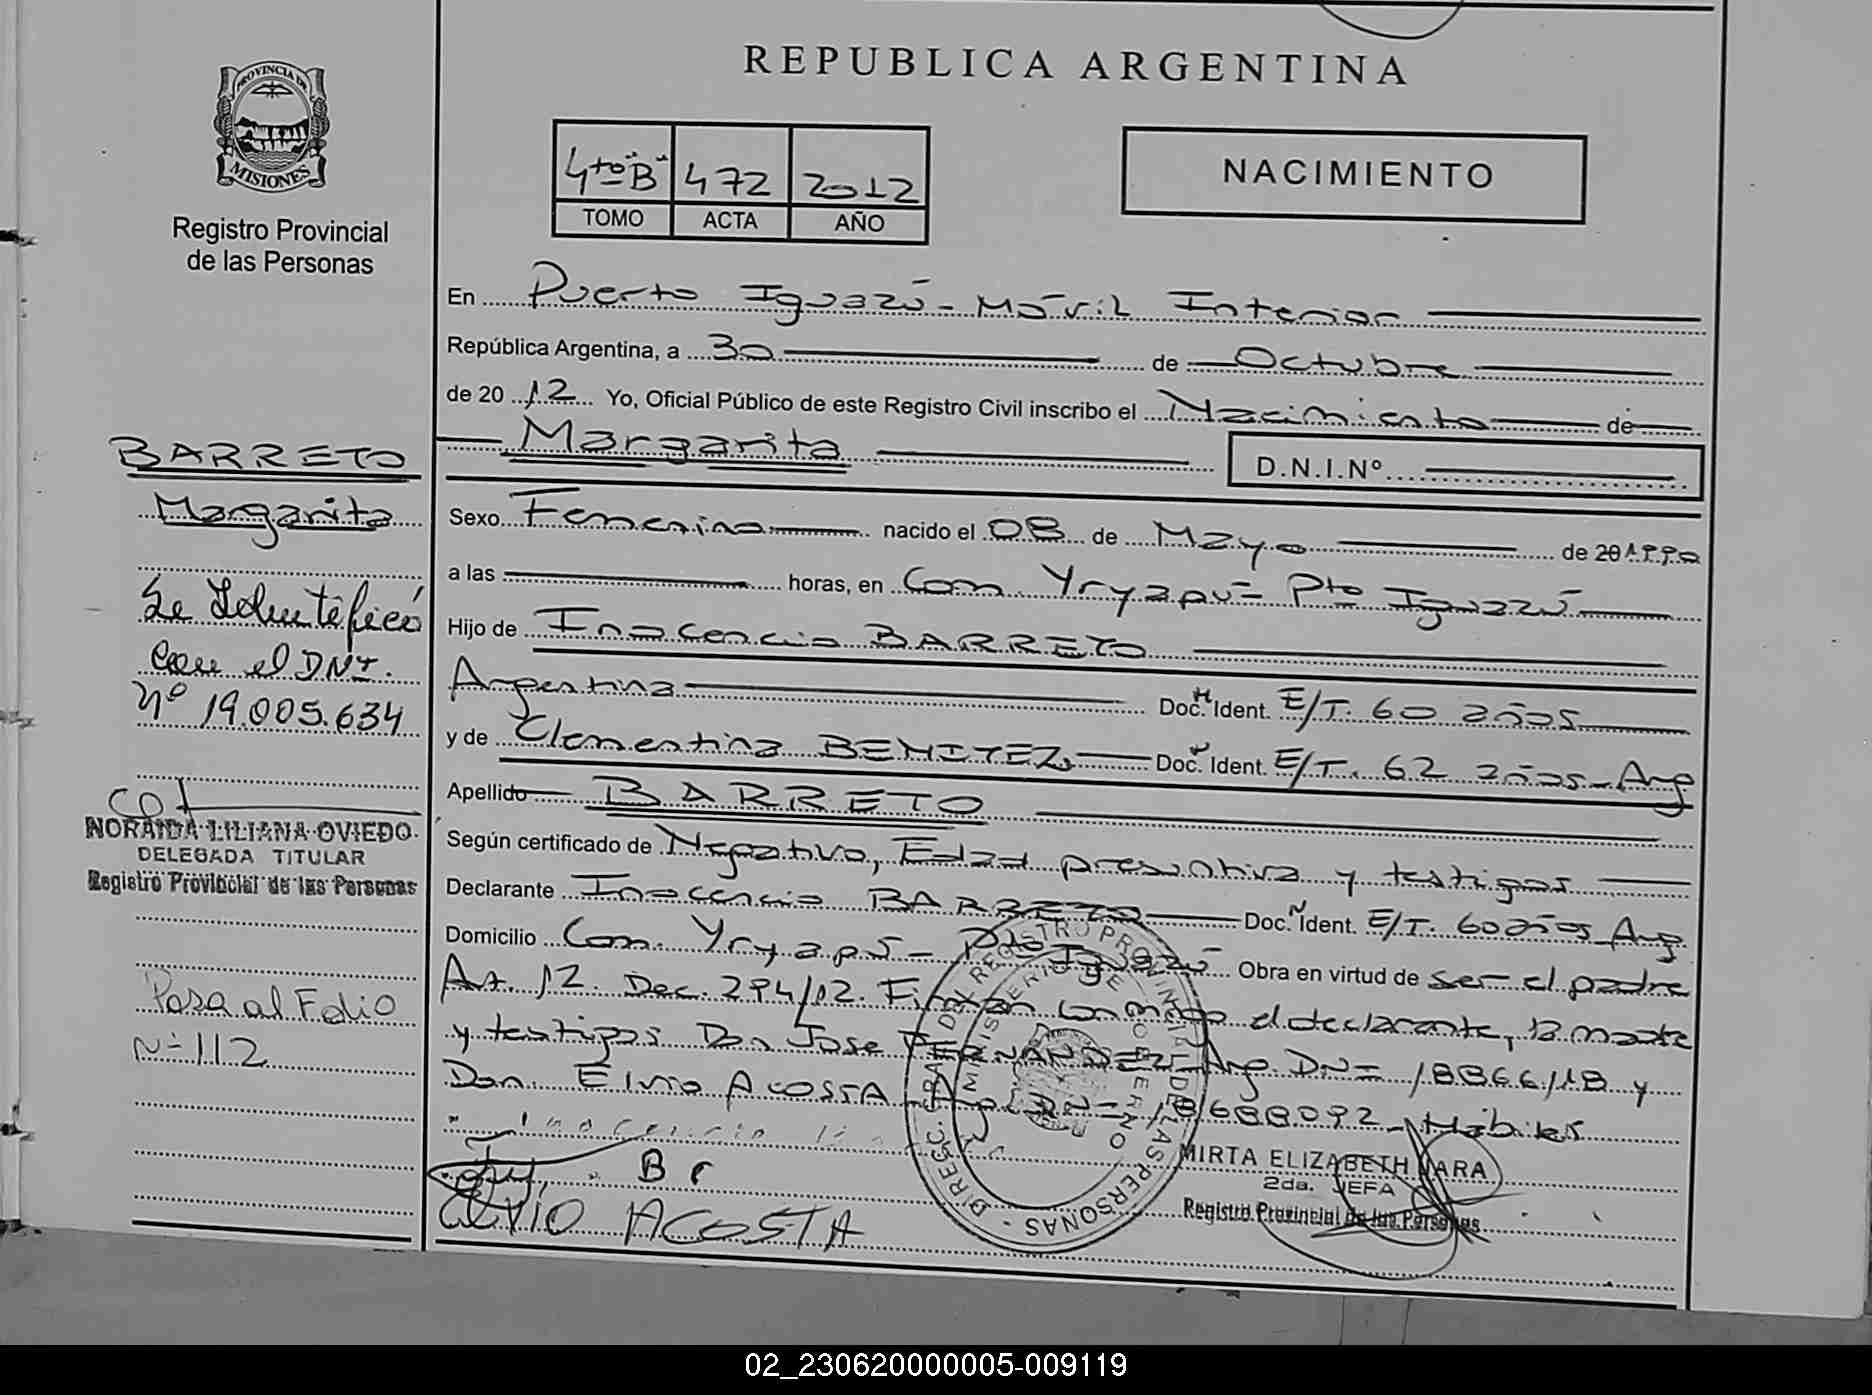 REPUBLICA ARGENTINA
PROVINCIA DE
MISIONES
Registro Provincial
de las Personas
4to "B" 472 2012
TOMO ACTA AÑO
NACIMIENTO
En Puerto Iguazú - Móvil Interior
República Argentina, a 30 de Octubre
de 2012 Yo, Oficial Público de este Registro Civil inscribo el Nacimiento de
Margarita D.N.I.Nº
Sexo Femenino nacido el 08 de Mayo de 20 1990
a las horas, en Com Yryapú - Pto Iguazú
Hijo de Inocencio BARRETO
Argentina Doc. Ident. E/T. 60 años
y de Clementina BENITEZ Doc. Ident. E/T. 62 años - Arg
Apellido BARRETO
Según certificado de Negativo, Edad presuntiva y testigos
Declarante Inocencio BARRETO Doc. Ident. E/T. 60 años Arg.
Domicilio Com. Yryapú - Pto Iguazú Obra en virtud de ser el padre
Art. 12. Dec. 294/12. Firman conmigo el declarante, la madre
y testigos Don Jose FERNANDEZ - Arg. DNI= 18866118 y
Don Elvio ACOSTA - Arg. DNI= 18688092 - Hábiles
Inocencio
Br
elvio ACOSTA
DIREC. GRAL. DEL REGISTRO PROVINCIAL DE LAS PERSONAS
MINISTERIO DE GOBIERNO
MIRTA ELIZABETH JARA
2da. JEFA
Registro Provincial de las Personas
BARRETO
Margarita
Se Identificó
con el DNI.
Nº 19.005.634
NORAIDA LILIANA OVIEDO
DELEGADA TITULAR
Registro Provincial de las Personas
Pasa al Folio
Nº 112
02_230620000005-009119